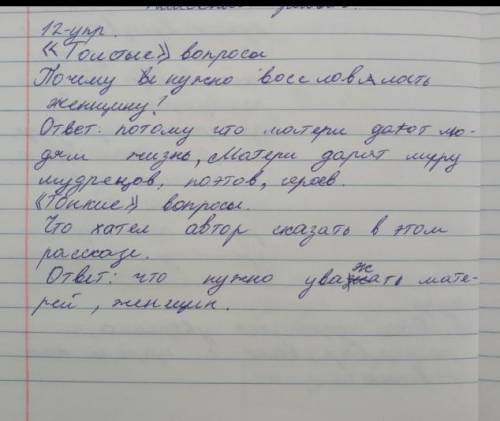 12-упр.
«Толстые» вопросы
Почему нужно восславлать
женщину?
Ответ: потому что матери дают лю-
дям жизнь, Матери дарят миру
мудрецов, поэтов, героев.
«Тонкие» вопросы.
Что хател автор сказать в этом
рассказе.
Ответ: что нужно уважать мате-
рей, женщин.